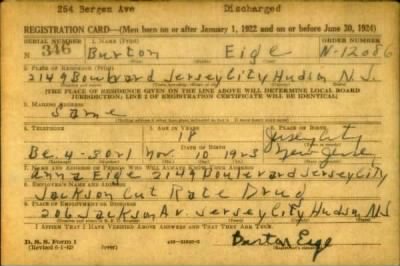 264 Bergen Ave Discharged
REGISTRATION CARD—(Men born on or after January 1, 1922 and on or before June 30, 1924)
SERIAL NUMBER 1. NAME (Print) ORDER NUMBER
N 346 Burton Eige N-12086
2. PLACE OF RESIDENCE (Print)
2149 Boulevard Jersey City Hudson N.J.
[THE PLACE OF RESIDENCE GIVEN ON THE LINE ABOVE WILL DETERMINE LOCAL BOARD
JURISDICTION; LINE 2 OF REGISTRATION CERTIFICATE WILL BE IDENTICAL]
3. MAILING ADDRESS
Same
4. TELEPHONE 5. AGE IN YEARS 6. PLACE OF BIRTH
18 Jersey City
DATE OF BIRTH
Be. 4-3021 Nov. 10 1923 New Jersey
7. NAME AND ADDRESS OF PERSON WHO WILL ALWAYS KNOW YOUR ADDRESS
Eige 2149 Boulevard Jersey City
8. EMPLOYER'S NAME AND ADDRESS
Jackson Cut Rate Drug
9. PLACE OF EMPLOYMENT OR BUSINESS
206 Jackson Av. Jersey City Hudson N.J.
I AFFIRM THAT I HAVE VERIFIED ABOVE ANSWERS AND THAT THEY ARE TRUE.
D. S. S. Form 1 Burton Eige
(Revised 6-1-42) (over)